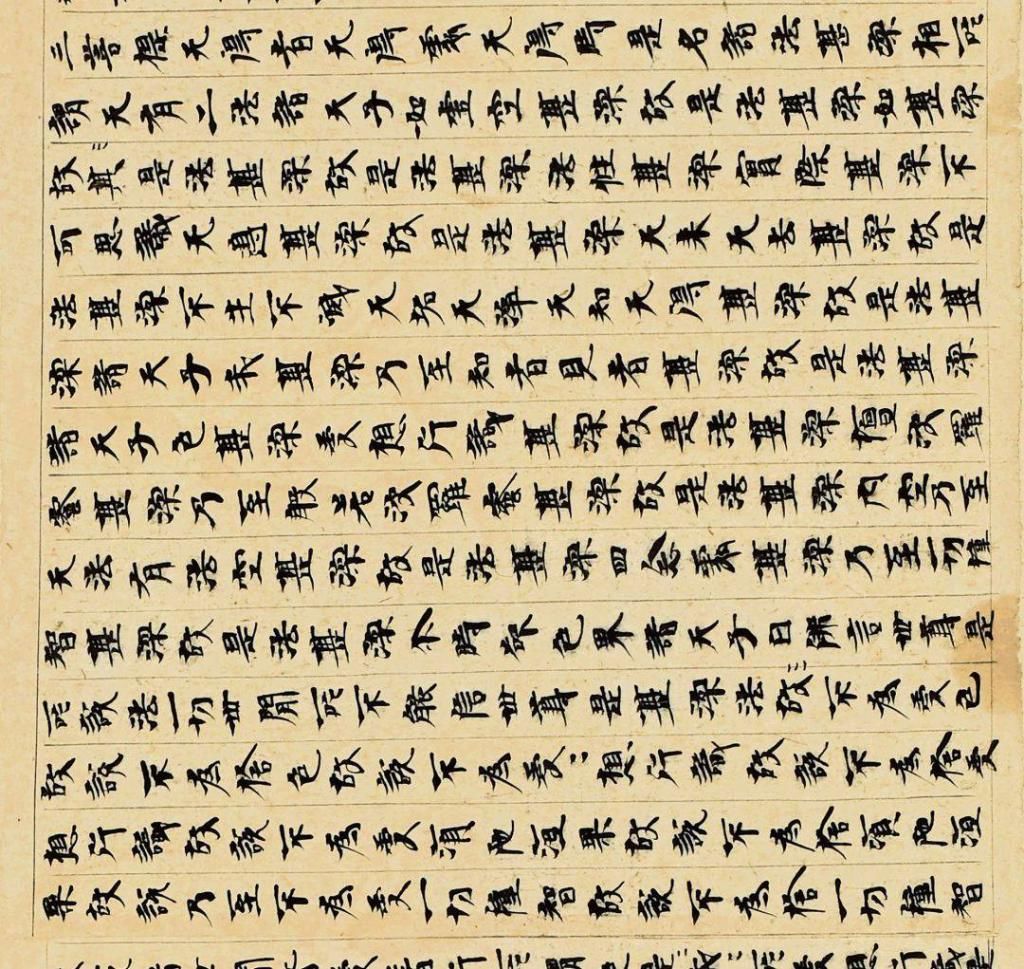 三菩提无得者无得處无得時是名諸法甚深相所
謂天有二法諸天子如虛空甚深故是法甚深如甚深
故是法甚深故是法甚深法性甚深實際甚深不
可思議无邊甚深故是法甚深无來无去甚深故是
法甚深不生不滅无垢无淨无知无得甚深故是法甚
深諸天子我甚深乃至知者見者甚深故是法甚深
諸天子色甚深受想行識甚深故是法甚深檀波羅
蜜甚深乃至般若波羅蜜甚深故是法甚深內空乃至
无法有法空甚深故是法甚深四念處甚深乃至一切種
智甚深故是法甚深尒時欲色界諸天子白佛言世尊是
所說法一切世間所不能信世尊是甚深法故不為受色
故說不為捨色故說不為受〻想行識故說不為捨受
想行識故說不為受須陀洹果故說不為捨須陀洹
果故說乃至不為受一切種智故說不為捨一切種智